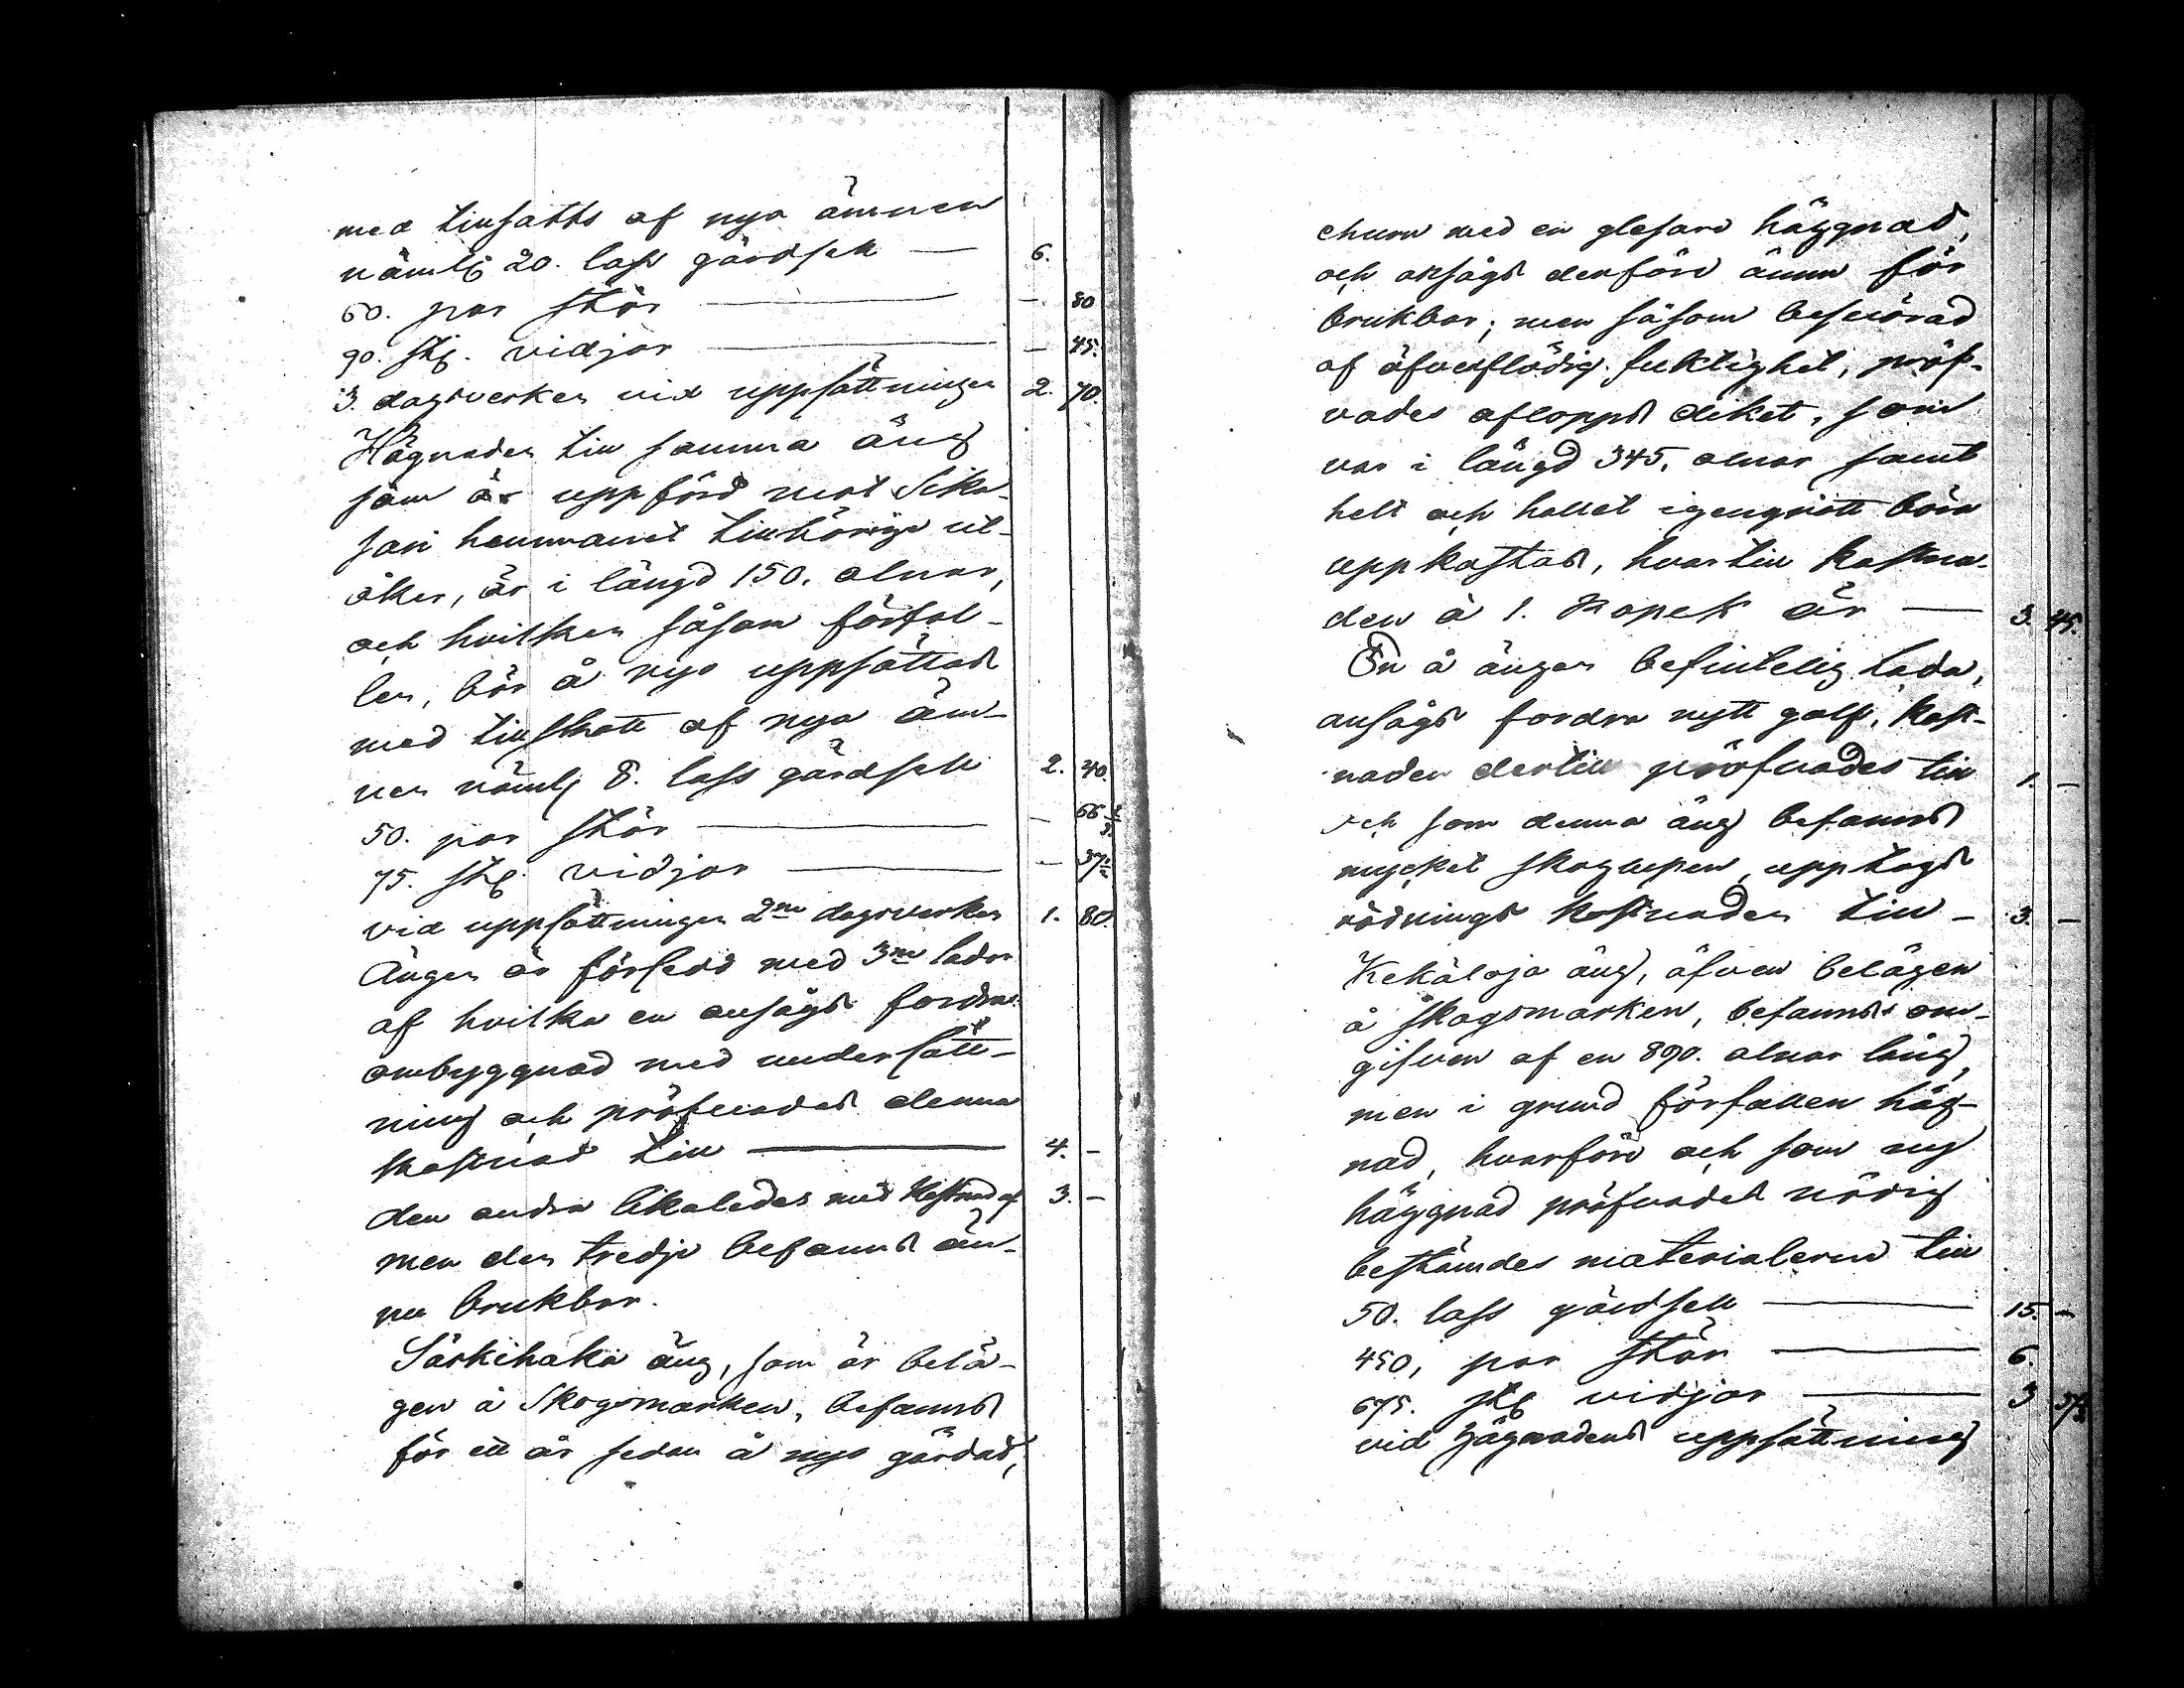 med tillsatts af nya ämnen
nämlig 20. lass gärdsell — 6.
60. par stör — — 80
90. st. vidjor — — 45.
3. dagsverken vid uppsättningen 2. 70.
Hägnaden till samma äng
som är uppförd mot Sika-
sari hemmanet tillhörige ut-
åker, är i längd 150. alnar,
och hvilken såsom förfal-
len, bör å nyo uppsättas
med tillskott af nya äm-
nen näml 8. lass gärdsell 2. 40.
50. par stör — — 66 2/3
75. st. vidjor — — 37 1/2
vid uppsättningen 2ne dagsverken 1. 80.
Ängen är försedd med 3ne lador
af hvilka en ansågs fordra
ombyggnad med undersätt-
ning och pröfvades denna
kostnad till — 4. –
den andra likaledes med kostnad af 3. –
men den tredje befanns än-
nu brukbar.
Särkihaka äng, som är belä-
gen å Skogsmarken, befanns
för ett år sedan å nyo gärdad,
ehuru med en glesare häggnad,
och ansågs derföre ännu för
brukbar; men såsom besvärad
af öfverflödig fuktighet, pröf-
vades aflopps diket, som
var i längd 345. alnar samt
helt och hållet igengrott böra
uppkastas, hvartill kostna-
den à 1. Kopek är — 3. 45.
En å ängen befintelig lada,
ansågs fordra nytt golf, kost-
naden dertill pröfvades till 1. –
och som denna äng befanns
mycket skogvepen, upptogs
rödnings kostnaden till – 3. –
Kekäloja äng, äfven belägen
å skogsmarken, befanns om-
gifven af en 890. alnar lång,
men i grund förfallen häg-
nad, hvarföre och som ny
häggnad pröfvades nödig
bestämdes materialerne till
50. lass gärdsell — 15. –
450, par stör — 6.
675. st. vidjor — 3 37/2
vid hägnadens uppsättning